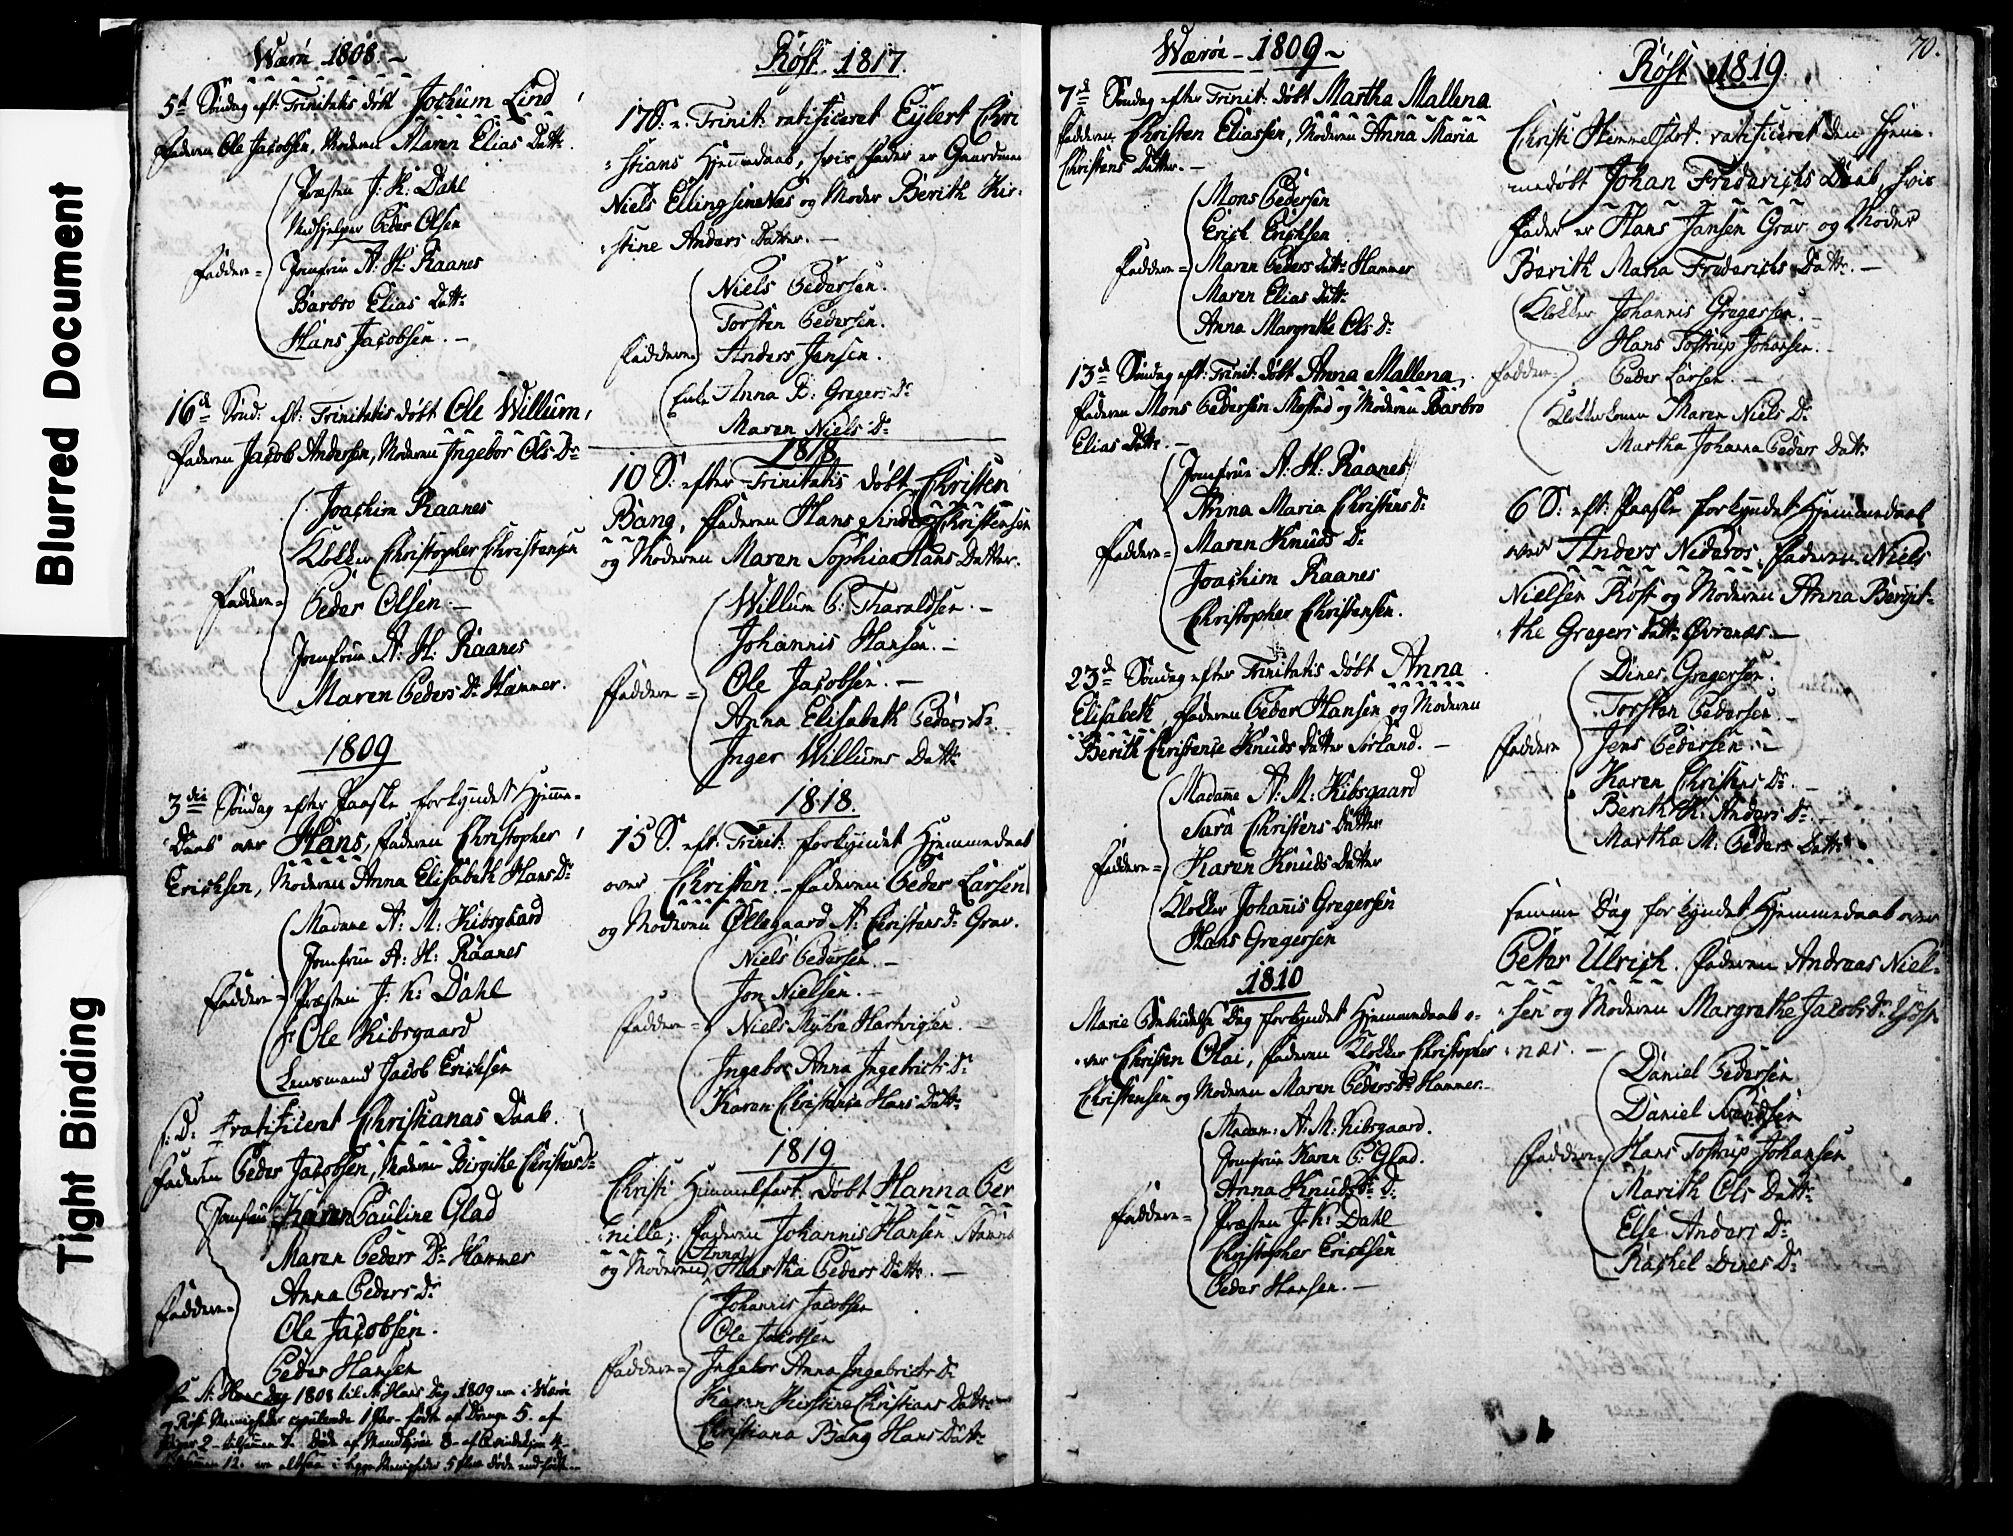 Blurred Document
Tight Binding
Wærøe 1808.
5t Søndag eft: Trinitatis døbt Jochum Lind,
Faderen Ole Jacobsen, Moderen Maren Elias Dattr.
Præsten J: K: Dahl
Medhjelper Peder Olsen
Faddere = Jomfrue A: H: Raanes
Barbro Elias Dattr
Hans Jacobsen. -
16d Sønd: eft: Trinitatis døbt Ole Willum,
Faderen Jacob Andersen, Moderen Ingebor Ols Dr
Joachim Raanes
Klokker Christopher Christensen
Faddere = Peder Olsen -
Jomfrue A: H: Raanes
Maren Peders Dr Hammer.
1809
3die Søndag efter Paaske forkyndet Hjemme-
Daab over Hans, Faderen Christopher
Erichsen, Moderen Anna Elisabeth Hans Dr
Madame A: M: Kibsgaard
Jomfrue A: H: Raanes
Faddere = Præsten J: K: Dahl
Hr Ole Kibsgaard
Lensmand Jacob Erichsen
S: D: ratificeret Christianas Daab.
Faderen Peder Jacobsen, Moderen Birgithe Christens Dr
Jomfrue Karen Pauline Glad
Maren Peders Dr Hammer
Anna Peders Dr
Faddere = Ole Jacobsen.
Peder Hansen
St: Hans Dag 1808 til St Hans Dag 1809 ere i Wærøe
og Røst Menigheder copulerede 1 Par - fødte af Drenge 5. af
Piger 2 - tilsammen 7. Døde af Mandkjøn 8 - af Qvindekjøn 4 -
12. ere altsaa i begge Menigheder 5 flere døde end fødte. -
Røst 1817.
17 S. e. Trinit: ratificeret Eylert Chri
= stians Hjemmedaab, hvis Fader er Gaardman
Niels Ellingsen Næs og Moder Berith Kir-
= stine Anders Datter. -
Niels Pedersen.
Torsten Pedersen.
Faddere Anders Jensen.
Enke Anna B: Gregers Dr
Maren Niels Dr
1818
10 S: efter Trinitatis døbt Christen
Bang, Faderen Hans Christensen
og Moderen Maren Sophia Hans Datter.
Willum P: Tharaldsen. -
Johannis Hansen. -
Faddere = Ole Jacobsen. -
Anna Elisabeth Peders Dr
Inger Willums Dattr
1818.
15 S. eft: Trinit: forkyndet Hjemmedaab
over Christen. - Faderen Peder Larsen
og Moderen Øllegaard A: Christens Dr Grav.
Niels Pedersen. -
Jon Nielsen. -
Faddere = Niels Mykre Hartvigsen. -
Ingebor Anna Ingebricts Dr
Karen Christense Hans Dattr
1819
Christi Himmelfart. døbt Hanna Per
= nille; Faderen Johannis Hansen
og Moderen Anna Martha Peders Dattr. -
Johannis Jacobsen
Ole Jacobsen
Faddere = Ingebor Anna Ingebricts Dr
Karen Kirstine Christians Dattr
Christiana Bang Hans Dattr
Wærøe - 1809 -
7de Søndag efter Trinit: døbt Martha Mallena
Faderen Christen Eliassen, Moderen Anna Maria
Christens Datter. -
Mons Pedersen
Erich Erichsen
Faddere = Maren Peders Dattr Hammer
Maren Elias Dattr
Anna Margrethe Ols Dr
13de Søndag eft: Trinit: døbt Anna Mallena,
Faderen Mons Pedersen Mostad og Moderen Barbro
Elias Dattr. -
Jomfrue A: H: Raanes
Anna Maria Christens Dr
Faddere = Maren Knuds Dr
Joachim Raanes
Christopher Christensen.
23de Søndag efter Trinitatis døbt Anna
Elisabeth, Faderen Peder Hansen og Moderen
Berith Christense Knuds Datter Sørland. -
Madame A: M: Kibsgaard
Sara Christens Datter
Faddere = Karen Knuds Datter
Klokker Johannis Gregersen
Hans Gregersen
1810
Marie Bebudelses Dag forkyndet Hjemmedaab o-
= ver Christen Olai, Faderen Klokker Christopher
Christensen og Moderen Maren Peders Dr Hammer. -
Madam: A: M: Kibsgaard.
Jomfrue Karen P: Glad.
Anna Knuds Dr
Faddere = Præsten J: K: Dahl
Christopher Erichsen
Peder Hansen. -
70.
Røst 1819.
Christi Hemmelfart. ratificeret den Hjem-
medøbt Johan Friderichs Daab, hvis
Fader er Hans Jansen Grav og Moder
Berith Maria Friderichs Dattr. -
Klokker Johannis Gregersen. -
Hans Tostrup Johansen. -
Faddere = Peder Larsen. -
Klokkerkonen Maren Niels Dr
Martha Johanna Peders Dattr
6 S: eft: Paaske forkyndet Hjemmedaab
over Anders Nideros. Faderen Niels
Nielsen Røst og Moderen Anna Berigt-
= the Gregers Dattr Øvrenæs. -
Dines Gregersen.
Torsten Pedersen
Faddere Jens Pedersen. -
Karen Christens Dr. -
Berith K: Anders Dr. -
Martha M: Peders Dattr
samme Dag forkyndet Hjemmedaab over
Peter Ulrich. Faderen Andreas Niel-
= sen og Moderen Margrethe Jacobs Dr
= næs. -
Daniel Pedersen
Daniel Svendsen
Faddere Hans Tostrup Johansen
Marith Ols Dattr
Else Anders Dr
Rachel Dines Dr